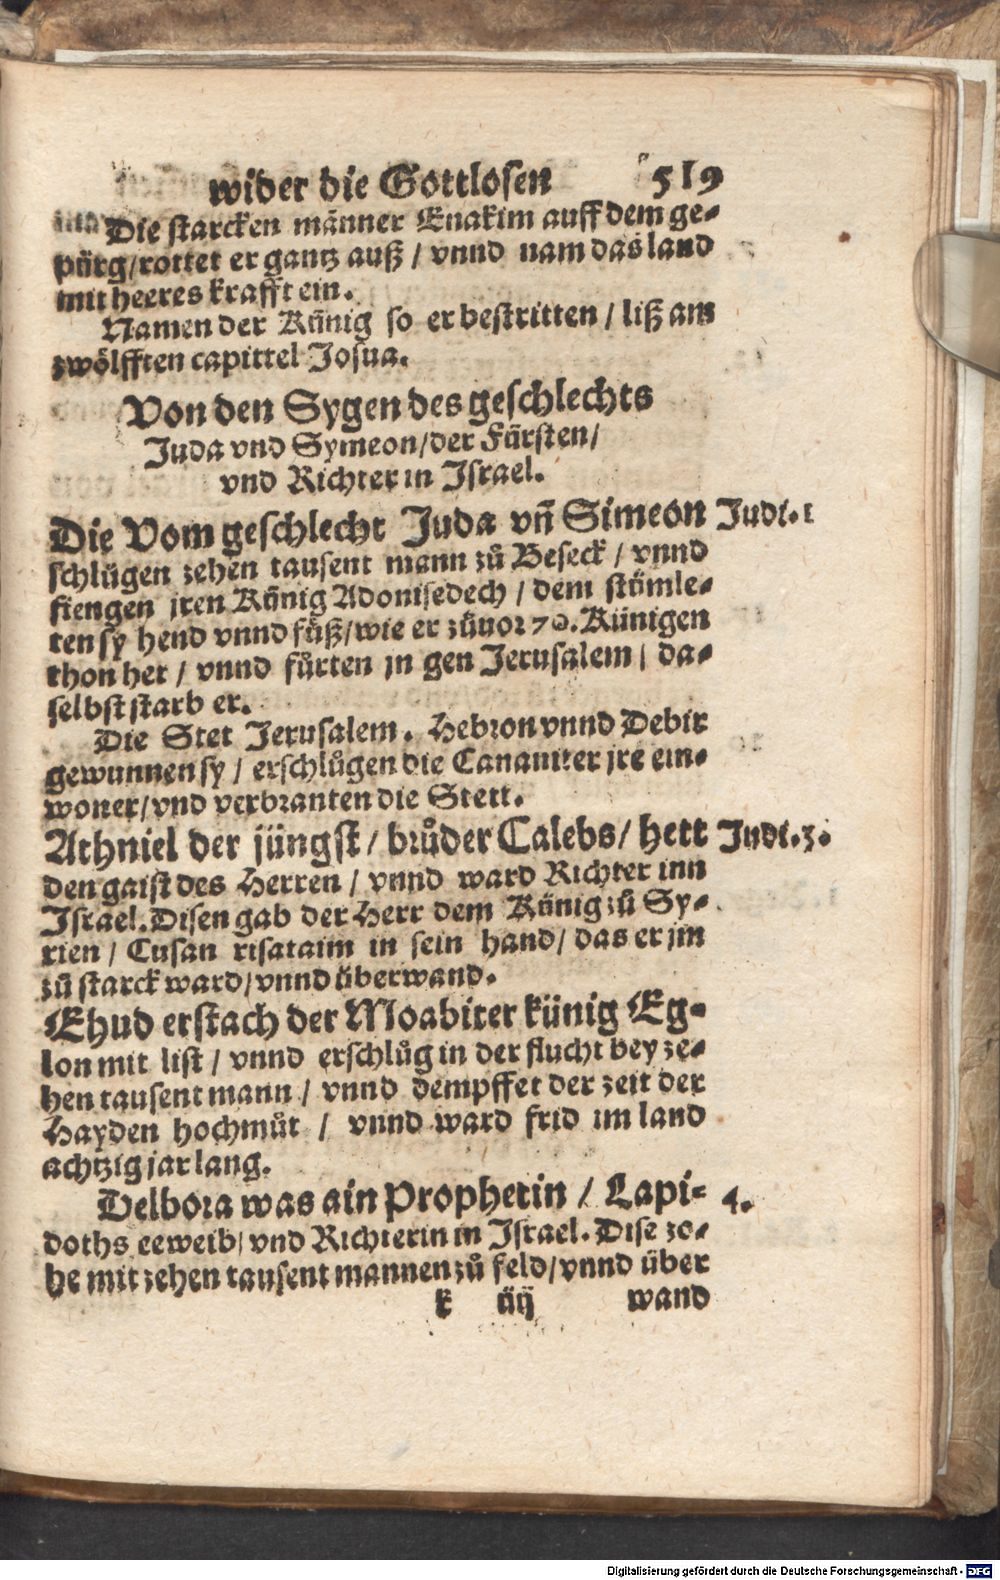 wider die Gottlosen 519
Die starcken männer Enakim auff dem ge-
pürg/rottet er gantz auß / vnnd nam das land
mit heeres krafft ein.
Namen der Künig so er bestritten / liß am
zwölfften capittel Josua.
Von den Sygen des geschlechts
Juda vnd Symeon/der Fürsten/
vnd Richter in Israel.
Die Vom geschlecht Juda vñ Simeon Judi.1
schlůgen zehen tausent mann zů Beseck / vnnd
fiengen jren Künig Adonisedech / dem stümle-
ten sy hend vnnd füß/wie er zůuor 70. Künigen
thon het / vnnd fůrten jn gen Jerusalem / da-
selbst starb er.
Die Stet Jerusalem. Hebron vnnd Debir
gewunnen sy / erschlůgen die Cananiter jre ein-
woner/vnd verbranten die Stett.
Athniel der jüngst / brůder Calebs/ hett Judi.3.
den gaist des Herren / vnnd ward Richter inn
Israel. Disen gab der Herr dem Künig zů Sy-
rien / Cusan risataim in sein hand/ das er jm
zů starck ward/vnnd überwand.
Ehud erstach der Moabiter künig Eg-
lon mit list / vnnd erschlůg in der flucht bey ze-
hen tausent mann / vnnd dempffet der zeit der
Hayden hochmůt / vnnd ward frid im land
achtzig jar lang.
Delbora was ain Prophetin / Lapi- 4.
doths eeweib/ vnd Richterin in Israel. Dise zo-
he mit zehen tausent mannen zů feld/vnnd über
k iij wand
Digitalisierung gefördert durch die Deutsche Forschungsgemeinschaft - DFG